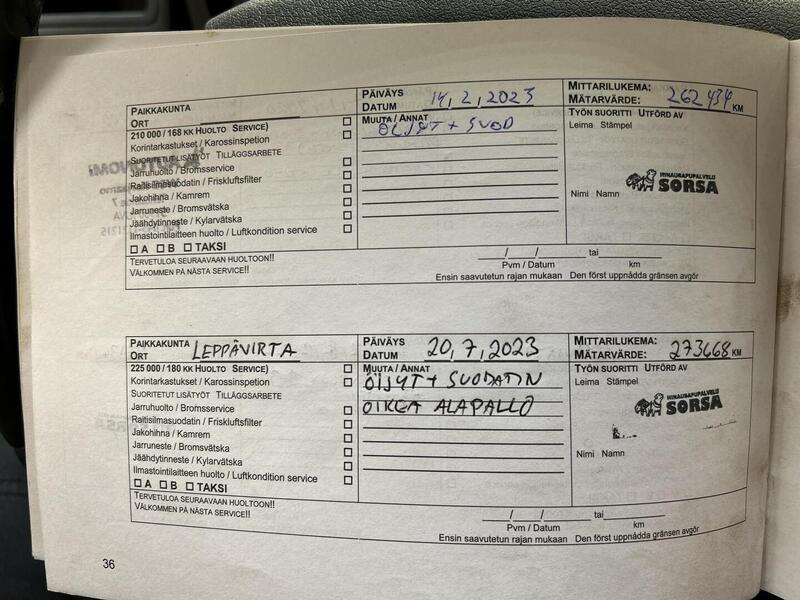 PAIKKAKUNTA
ORT
PÄIVÄYS
DATUM 14, 2, 2023
MITTARILUKEMA:
MÄTARVÄRDE: 262434 KM
210 000 / 168 KK HUOLTO SERVICE)
Korintarkastukset / Karossinspetion
SUORITETUT LISÄTYÖT TILLÄGGSARBETE
Jarruhuolto / Bromsservice
Raitisilmasuodatin / Friskluftsfilter
Jakohihna / Kamrem
Jarruneste / Bromsvätska
Jäähdytinneste / Kylarvätska
Ilmastointilaitteen huolto / Luftkondition service
A B TAKSI
TERVETULOA SEURAAVAAN HUOLTOON!!
VÄLKOMMEN PÅ NÄSTA SERVICE!!
MUUTA / ANNAT
ÖLJYT + SUOD
TYÖN SUORITTI UTFÖRD AV
Leima Stämpel
HINAURAPUPALVELU
SORSA
Nimi Namn
/ / tai
Pvm / Datum km
Ensin saavutetun rajan mukaan Den först uppnådda gränsen avgör
PAIKKAKUNTA
ORT LEPPÄVIRTA
PÄIVÄYS
DATUM 20, 7, 2023
MITTARILUKEMA:
MÄTARVÄRDE: 273668 KM
225 000 / 180 KK HUOLTO SERVICE)
Korintarkastukset / Karossinspetion
SUORITETUT LISÄTYÖT TILLÄGGSARBETE
Jarruhuolto / Bromsservice
Raitisilmasuodatin / Friskluftsfilter
Jakohihna / Kamrem
Jarruneste / Bromsvätska
Jäähdytinneste / Kylarvätska
Ilmastointilaitteen huolto / Luftkondition service
A B TAKSI
TERVETULOA SEURAAVAAN HUOLTOON!!
VÄLKOMMEN PÅ NÄSTA SERVICE!!
MUUTA / ANNAT
ÖLJYT + SUODATIN
OIKEA ALAPALLO
TYÖN SUORITTI UTFÖRD AV
Leima Stämpel
HINAURAPUPALVELU
SORSA
Nimi Namn
/ / tai
Pvm / Datum km
Ensin saavutetun rajan mukaan Den först uppnådda gränsen avgör
36